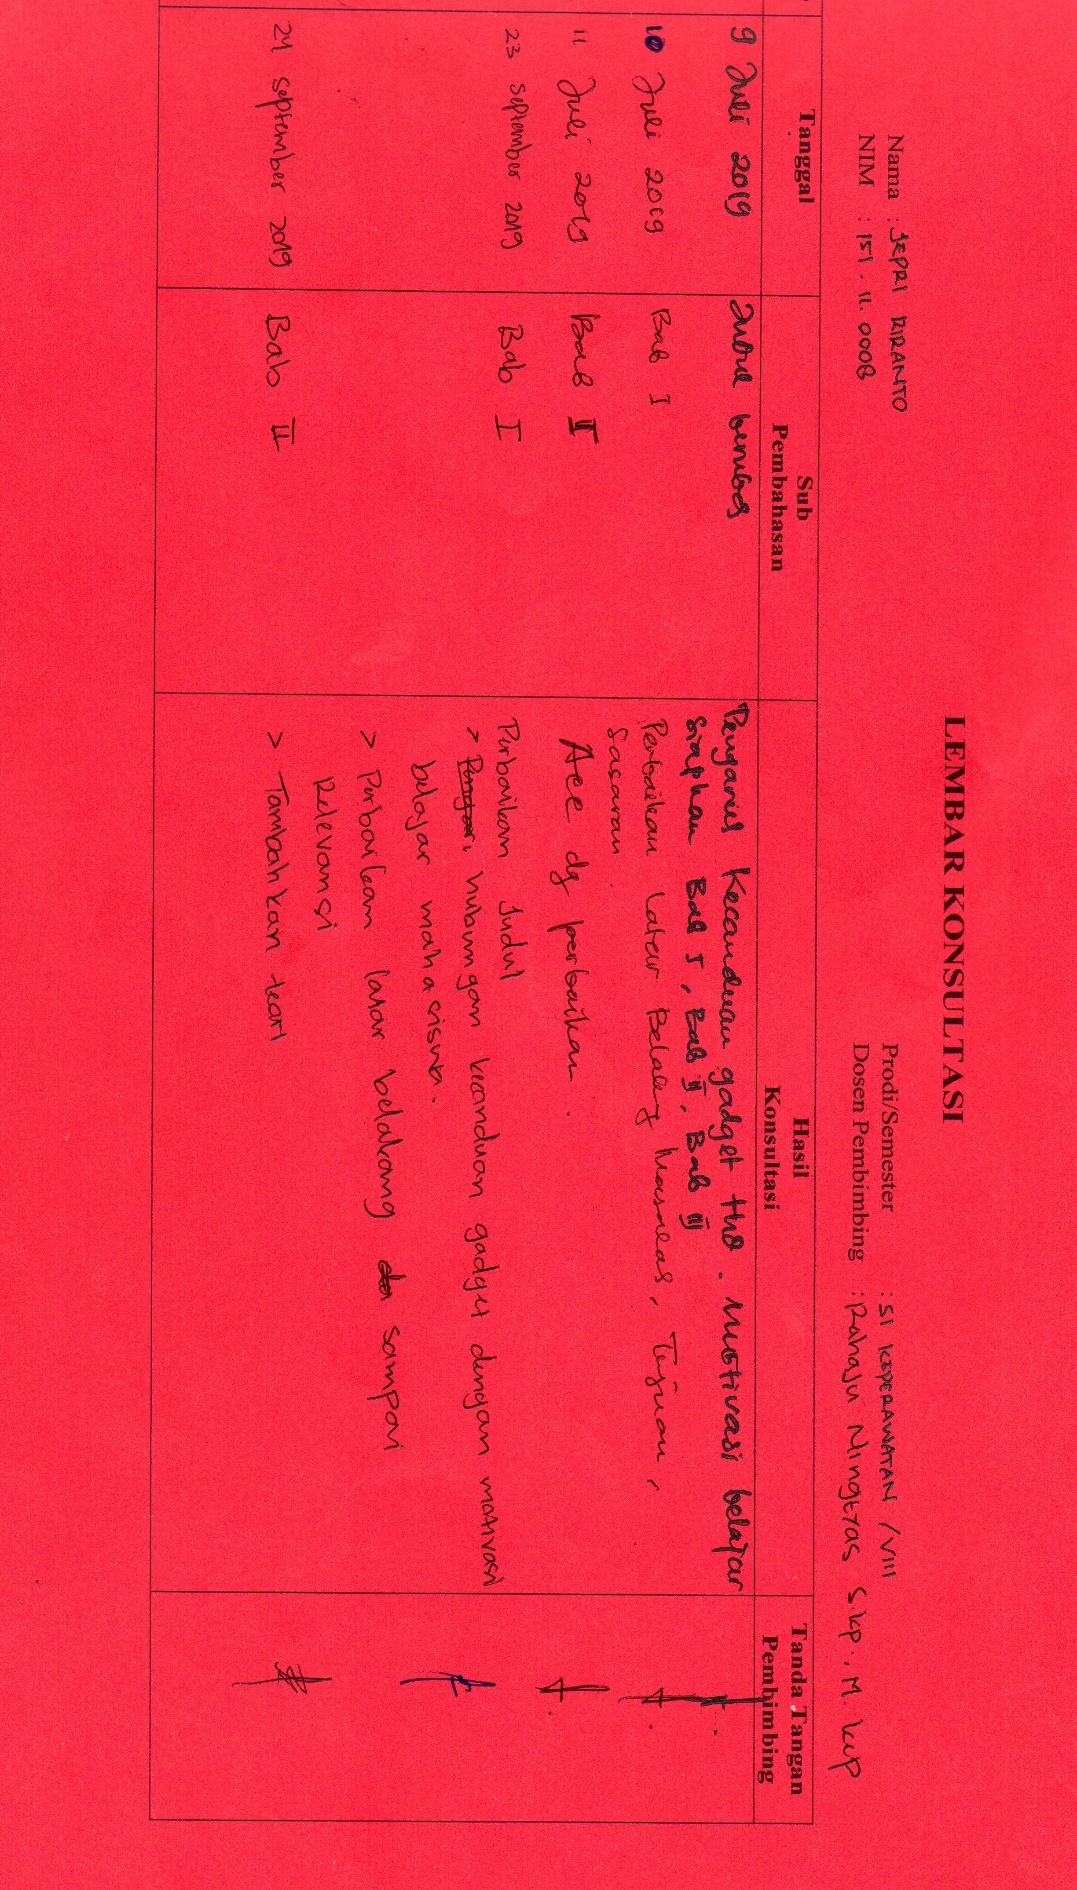 LEMBAR KONSULTASI
Nama : JEPRI RIRANTO
NIM : 151.11.0008
Prodi/Semester : S1 KEPERAWATAN / VIII
Dosen Pembimbing : Rahaju Ningtyas S.kp., M. kep
Tanggal
Sub Pembahasan
Hasil Konsultasi
Tanda Tangan Pembimbing
9 Juli 2019
Judul
Pengaruh Kecanduan gadget thd. motivasi belajar
siapkan Bab I, Bab II, Bab III
10 Juli 2019
Bab I
Perbaikan Latar Belakang Masalah, Tujuan,
Sasaran
11 Juli 2019
Bab II
Acc dg perbaikan.
23 september 2019
Bab I
Perbaikan Judul
> hubungan kecanduan gadget dengan motivasi
belajar mahasiswa.
> Perbaikan latar belakang sampai
Relevansi
24 september 2019
Bab II
> Tambahkan teori